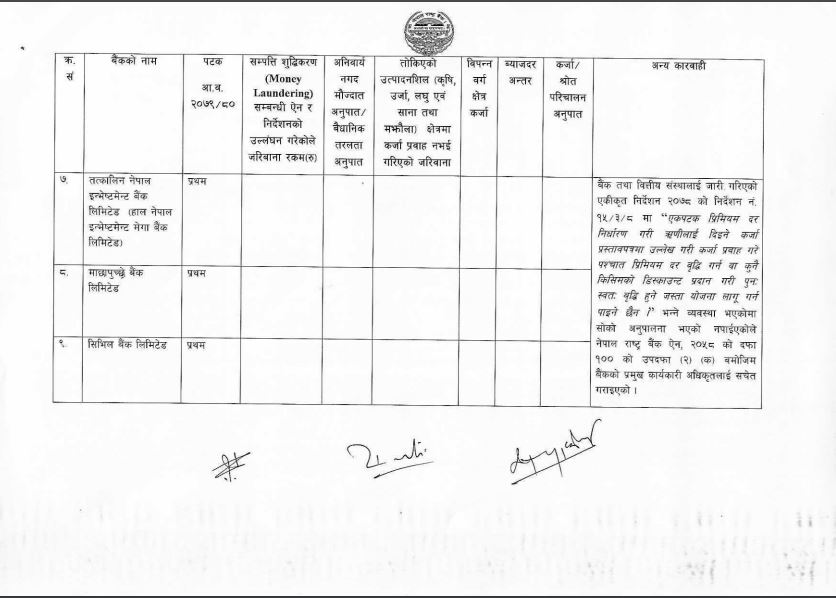 क्र.
सं
बैंकको नाम
पटक
आ.व.
२०७९/८०
सम्पत्ति शुद्धिकरण
(Money
Laundering)
सम्बन्धी ऐन र
निर्देशनको
उल्लंघन गरेकोले
जरिवाना रकम(रु)
अनिवार्य
नगद
मौज्दात
अनुपात/
वैधानिक
तरलता
अनुपात
तोकिएको
उत्पादनशिल (कृषि,
उर्जा, लघु एवं
साना तथा
मझौला) क्षेत्रमा
कर्जा प्रवाह नभई
गरिएको जरिवाना
विपन्न
वर्ग
क्षेत्र
कर्जा
ब्याजदर
अन्तर
कर्जा/
श्रोत
परिचालन
अनुपात
अन्य कारबाही
७.
तत्कालिन नेपाल
इन्भेष्टमेन्ट बैंक
लिमिटेड (हाल नेपाल
इन्भेष्टमेन्ट मेगा बैंक
लिमिटेड)
प्रथम
८.
माछापुच्छ्रे बैंक
लिमिटेड
प्रथम
९.
सिभिल बैंक लिमिटेड
प्रथम
बैंक तथा वित्तीय संस्थालाई जारी गरिएको
एकीकृत निर्देशन २०७८ को निर्देशन नं.
१५/३/८ मा “एकपटक प्रिमियम दर
निर्धारण गरी ऋणीलाई दिइने कर्जा
प्रस्तावपत्रमा उल्लेख गरी कर्जा प्रवाह गरे
पश्चात प्रिमियम दर वृद्धि गर्न वा कुनै
किसिमको डिस्काउन्ट प्रदान गरी पुनः
स्वतः वृद्धि हुने जस्ता योजना लागू गर्न
पाइने छैन ।” भन्ने व्यवस्था भएकोमा
सोको अनुपालना भएको नपाईएकोले
नेपाल राष्ट्र बैंक ऐन, २०५८ को दफा
१०० को उपदफा (२) (क) बमोजिम
बैंकको प्रमुख कार्यकारी अधिकृतलाई सचेत
गराइएको ।